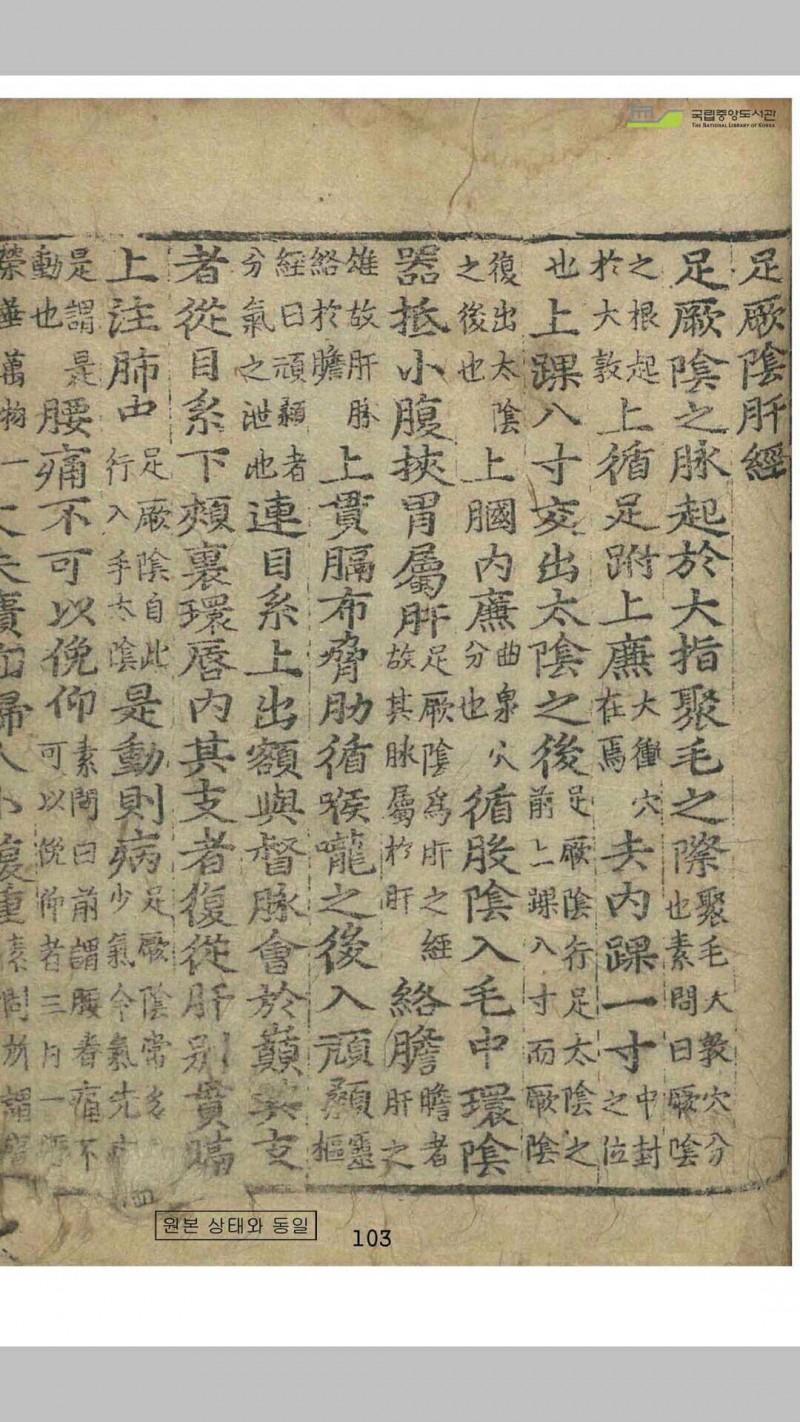 국립중앙도서관
THE NATIONAL LIBRARY OF KOREA
足厥陰肝經
足厥陰之脉起於大指聚毛之際聚毛大敦穴分也素問曰厥陰
之根起於大敦上循足跗上廉大衝穴在焉去內踝一寸中封之位
也上踝八寸交出太陰之後足厥陰行足太陰之前上踝八寸而厥陰
復出太陰之後也上膕內廉曲泉穴分也循股陰入毛中環陰
器抵小腹挾胃屬肝足厥陰爲肝之經故其脉屬於肝絡膽膽者肝之
雄故肝脉絡於膽上貫膈布脅肋循喉嚨之後入頏顙靈樞
經曰頏顙者分氣之泄也連目系上出額與督脉會於巔其支
者從目系下頰裏環唇內其支者復從肝別貫膈
上注肺中足厥陰自此行入手太陰是動則病足厥陰常多少氣今氣先
是謂是動也腰痛不可以俛仰素問曰前謂腰者痛不可以俛仰者三月一
榮華萬物一
원본 상태와 동일
103